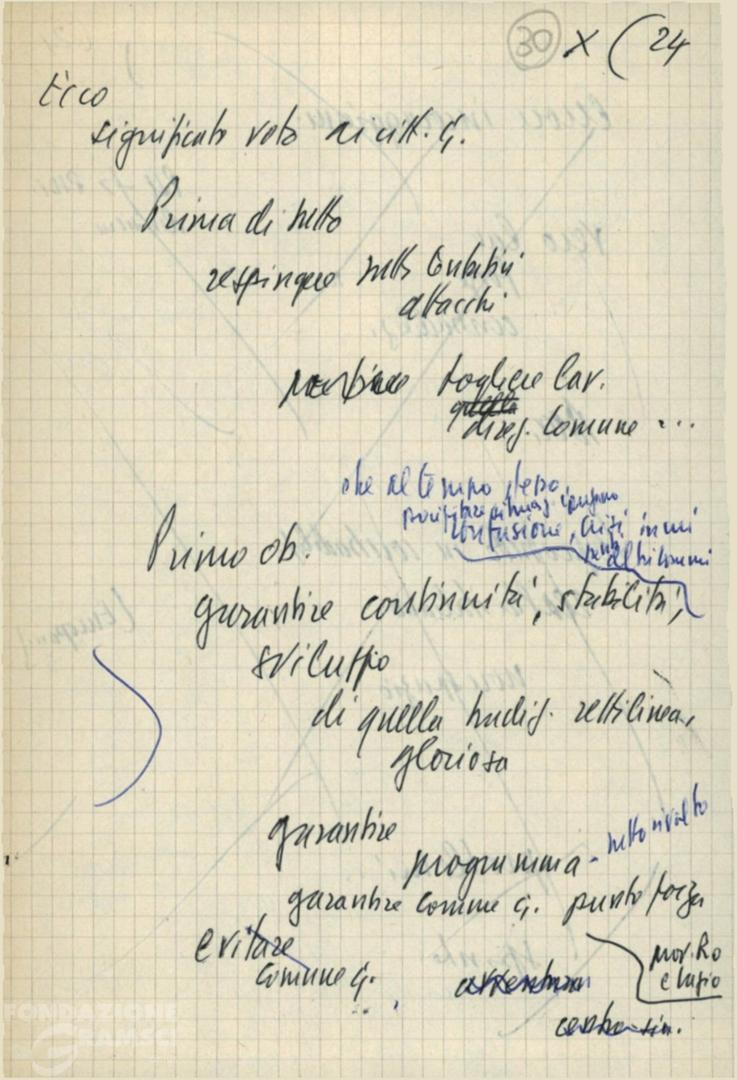 30 X ( 24
Ecco
significato voto ai citt. G.
Prima di tutto
respingere tutti tentativi
attacchi
togliere lav.
quella
direz. Comune ...
che al tempo stesso
confusione, crisi in mi
altri comuni
Primo ob.
garantire continuità, stabilità,
sviluppo
di quella tradiz. rettilinea,
gloriosa
garantire
programma - tutto rivolto
garantire Comune G. punto forza
mov. Ro
e Lazio
evitare
Comune G.
avventura
centro-sin.
FONDAZIONE
GRAMSCI